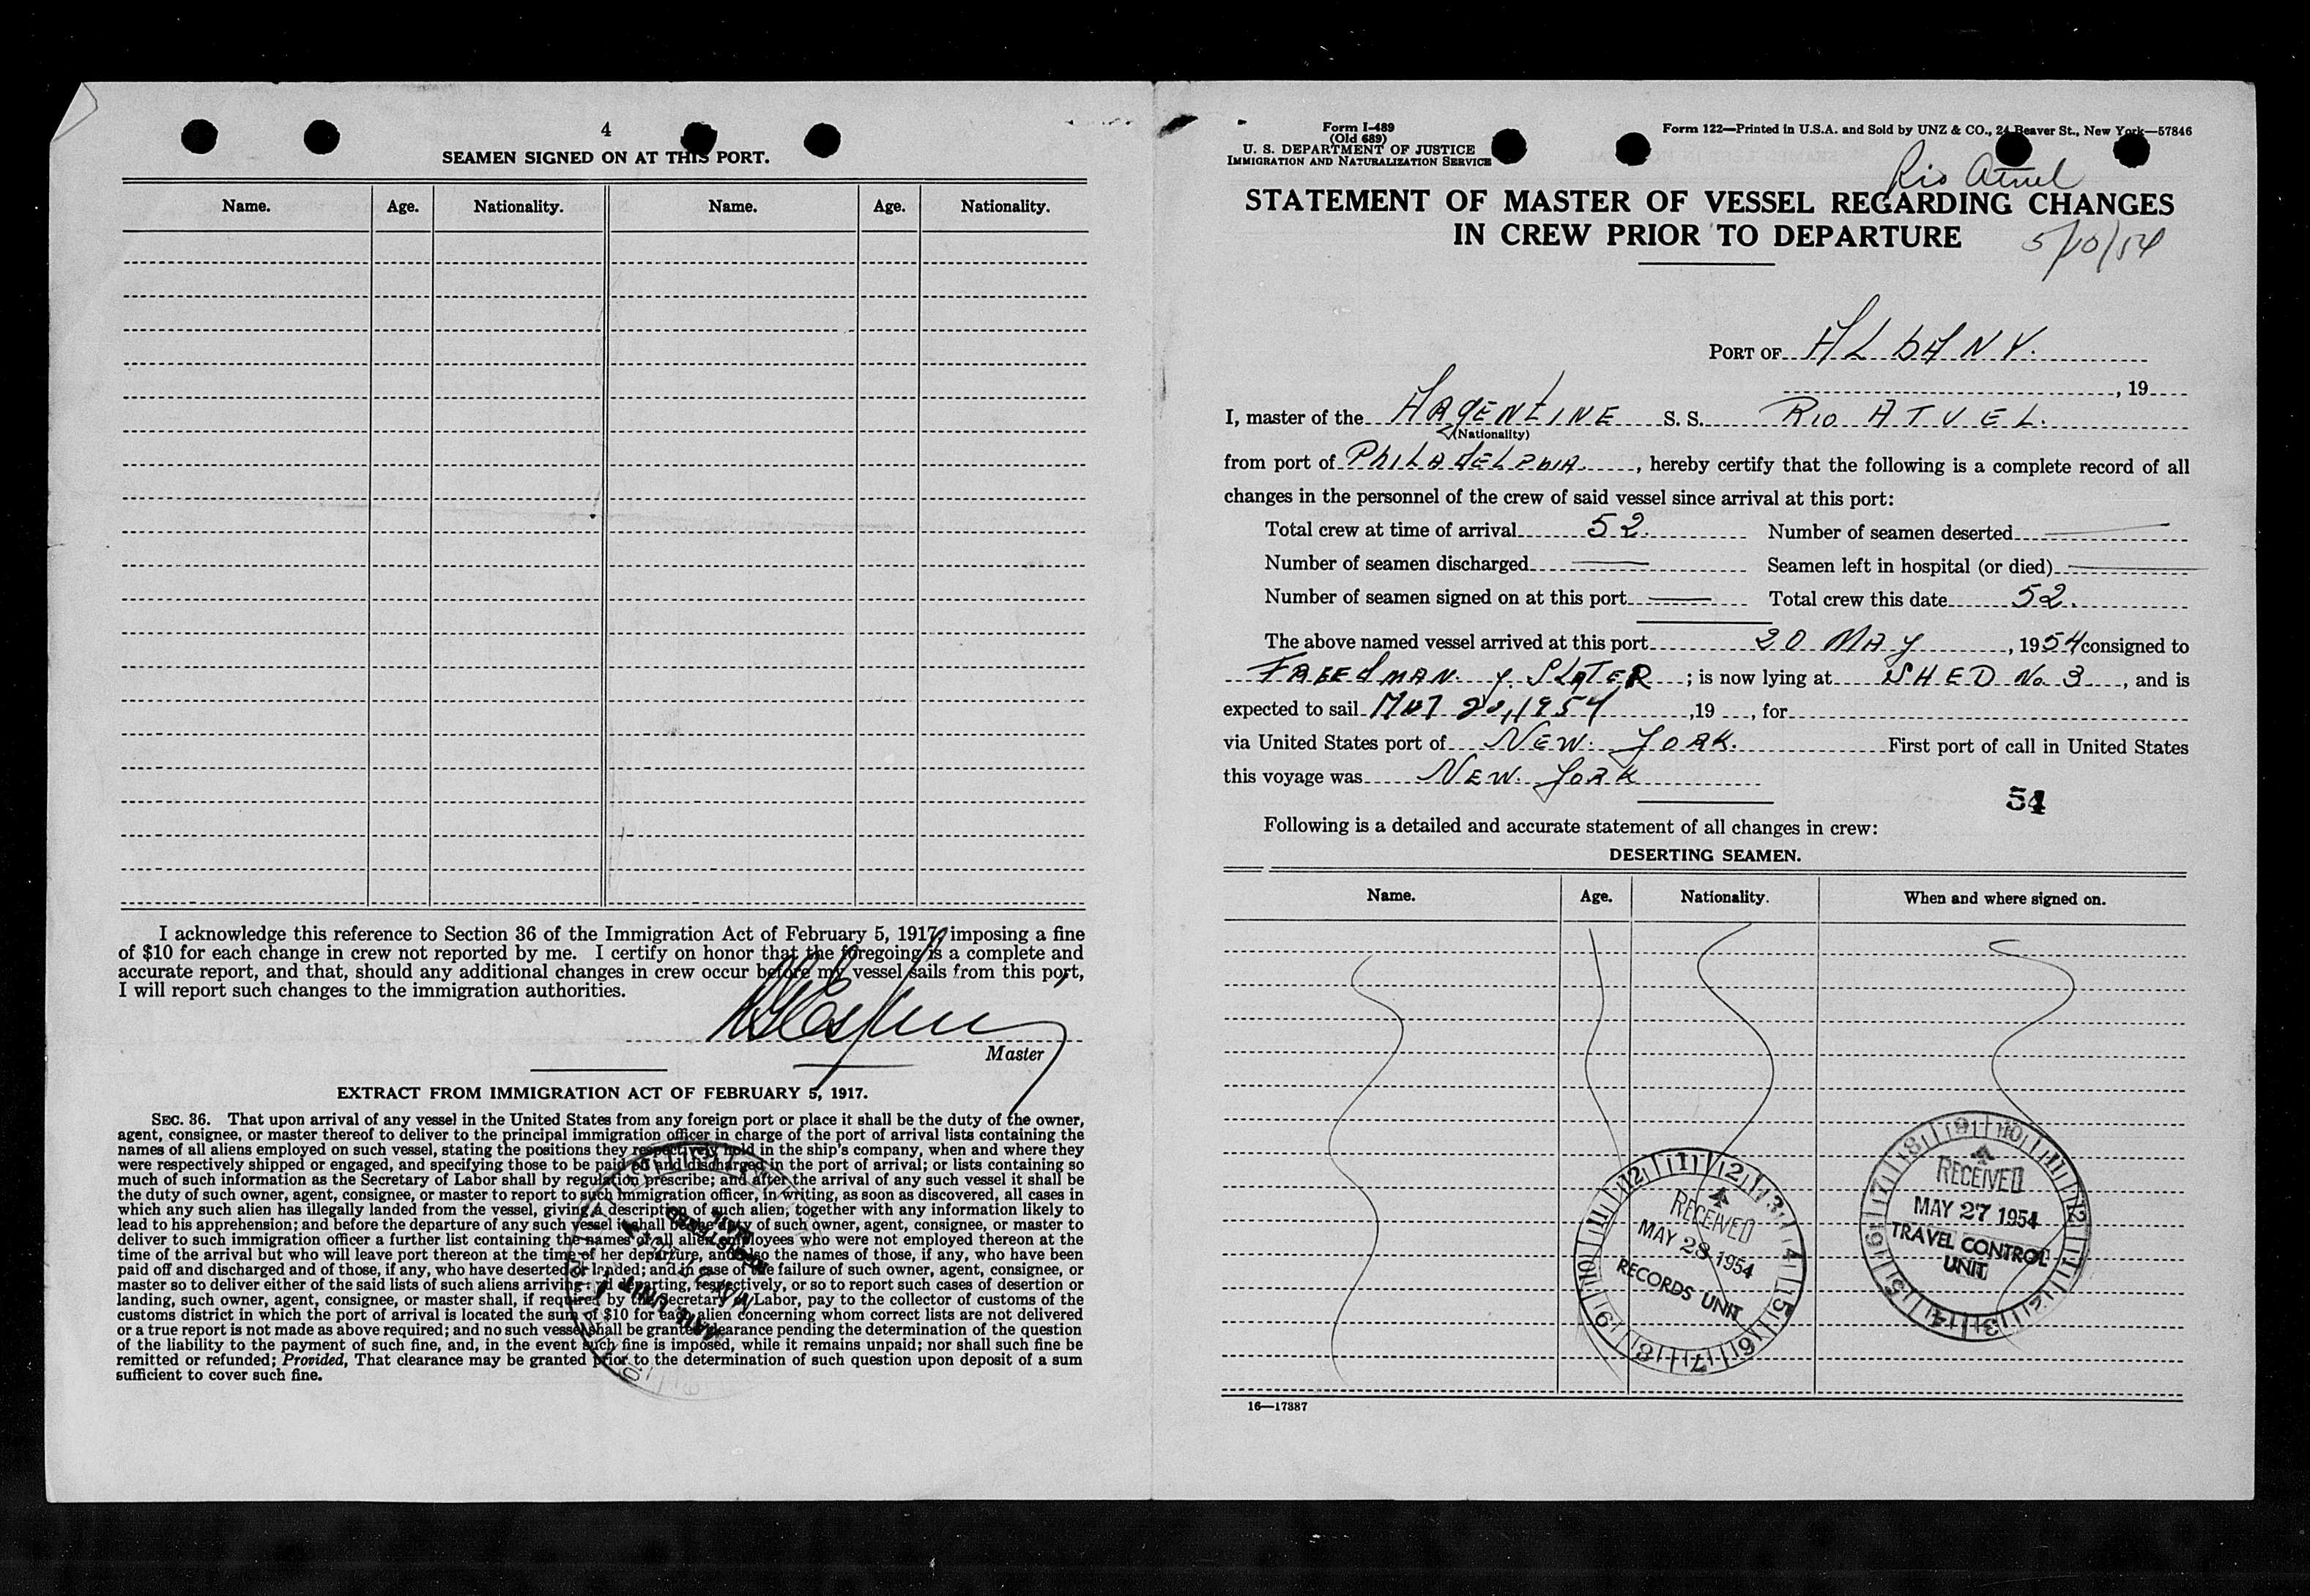 4
SEAMEN SIGNED ON AT THIS PORT.
Name. Age. Nationality. Name. Age. Nationality.
I acknowledge this reference to Section 36 of the Immigration Act of February 5, 1917, imposing a fine
of $10 for each change in crew not reported by me. I certify on honor that the foregoing is a complete and
accurate report, and that, should any additional changes in crew occur before my vessel sails from this port,
I will report such changes to the immigration authorities.
Master
EXTRACT FROM IMMIGRATION ACT OF FEBRUARY 5, 1917.
SEC. 36. That upon arrival of any vessel in the United States from any foreign port or place it shall be the duty of the owner,
agent, consignee, or master thereof to deliver to the principal immigration officer in charge of the port of arrival lists containing the
names of all aliens employed on such vessel, stating the positions they respectively hold in the ship's company, when and where they
were respectively shipped or engaged, and specifying those to be paid off and discharged in the port of arrival; or lists containing so
much of such information as the Secretary of Labor shall by regulation prescribe; and after the arrival of any such vessel it shall be
the duty of such owner, agent, consignee, or master to report to such immigration officer, in writing, as soon as discovered, all cases in
which any such alien has illegally landed from the vessel, giving a description of such alien, together with any information likely to
lead to his apprehension; and before the departure of any such vessel it shall be the duty of such owner, agent, consignee, or master to
deliver to such immigration officer a further list containing the names of all alien employees who were not employed thereon at the
time of the arrival but who will leave port thereon at the time of her departure, and also the names of those, if any, who have been
paid off and discharged and of those, if any, who have deserted or landed; and in case of the failure of such owner, agent, consignee, or
master so to deliver either of the said lists of such aliens arriving and departing, respectively, or so to report such cases of desertion or
landing, such owner, agent, consignee, or master shall, if required by the Secretary of Labor, pay to the collector of customs of the
customs district in which the port of arrival is located the sum of $10 for each alien concerning whom correct lists are not delivered
or a true report is not made as above required; and no such vessel shall be granted clearance pending the determination of the question
of the liability to the payment of such fine, and, in the event such fine is imposed, while it remains unpaid; nor shall such fine be
remitted or refunded; Provided, That clearance may be granted prior to the determination of such question upon deposit of a sum
sufficient to cover such fine.
MAIL UNIT
Form I-489
(Old 689)
U. S. DEPARTMENT OF JUSTICE
IMMIGRATION AND NATURALIZATION SERVICE
Form 122—Printed in U.S.A. and Sold by UNZ & CO., 24 Beaver St., New York—57846
Rio Atuel
STATEMENT OF MASTER OF VESSEL REGARDING CHANGES
IN CREW PRIOR TO DEPARTURE
5/10/54
PORT OF ALbANY.
, 19
I, master of the ARgENtINE S. S. RIO ATUEL.
(Nationality)
from port of PhILAdELPhIA, hereby certify that the following is a complete record of all
changes in the personnel of the crew of said vessel since arrival at this port:
Total crew at time of arrival 52. Number of seamen deserted
Number of seamen discharged Seamen left in hospital (or died)
Number of seamen signed on at this port Total crew this date 52.
The above named vessel arrived at this port 20 MAy, 1954 consigned to
FREEdMAN y SLATER; is now lying at SHED No 3, and is
expected to sail 20, 1954, 19 , for
via United States port of NEW. YORK. First port of call in United States
this voyage was NEW. YORK
54
Following is a detailed and accurate statement of all changes in crew:
DESERTING SEAMEN.
Name. Age. Nationality. When and where signed on.
12 1 2 3 4 5 6 7 8 9 10 11
RECEIVED
MAY 28 1954
RECORDS UNIT
9 10 11 12 1 2 3 4 5 6 7 8
RECEIVED
MAY 27 1954
TRAVEL CONTROL
UNIT
16—17387